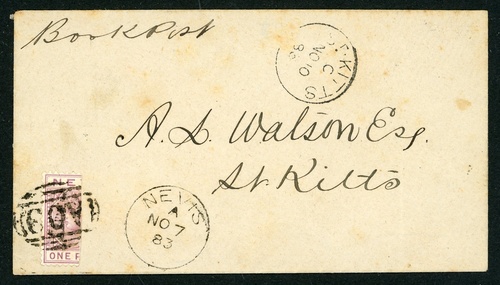 Book Post
ST. KITTS
C
NO 10
83
A. L. Watson Esq.
St. Kitts
NE
A09
ONE P
NEVIS
A
NO 7
83